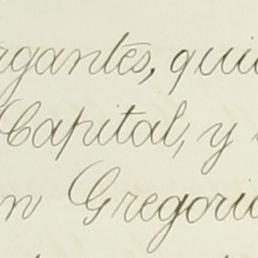 rgantes, quie
Capital, y
n Gregorio